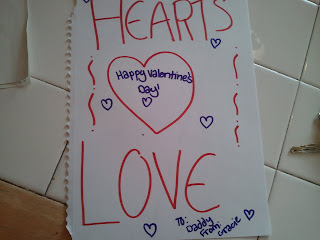 HEARTS
Happy Valentine's
Day!
LOVE
To:
Daddy
From:
Gracie